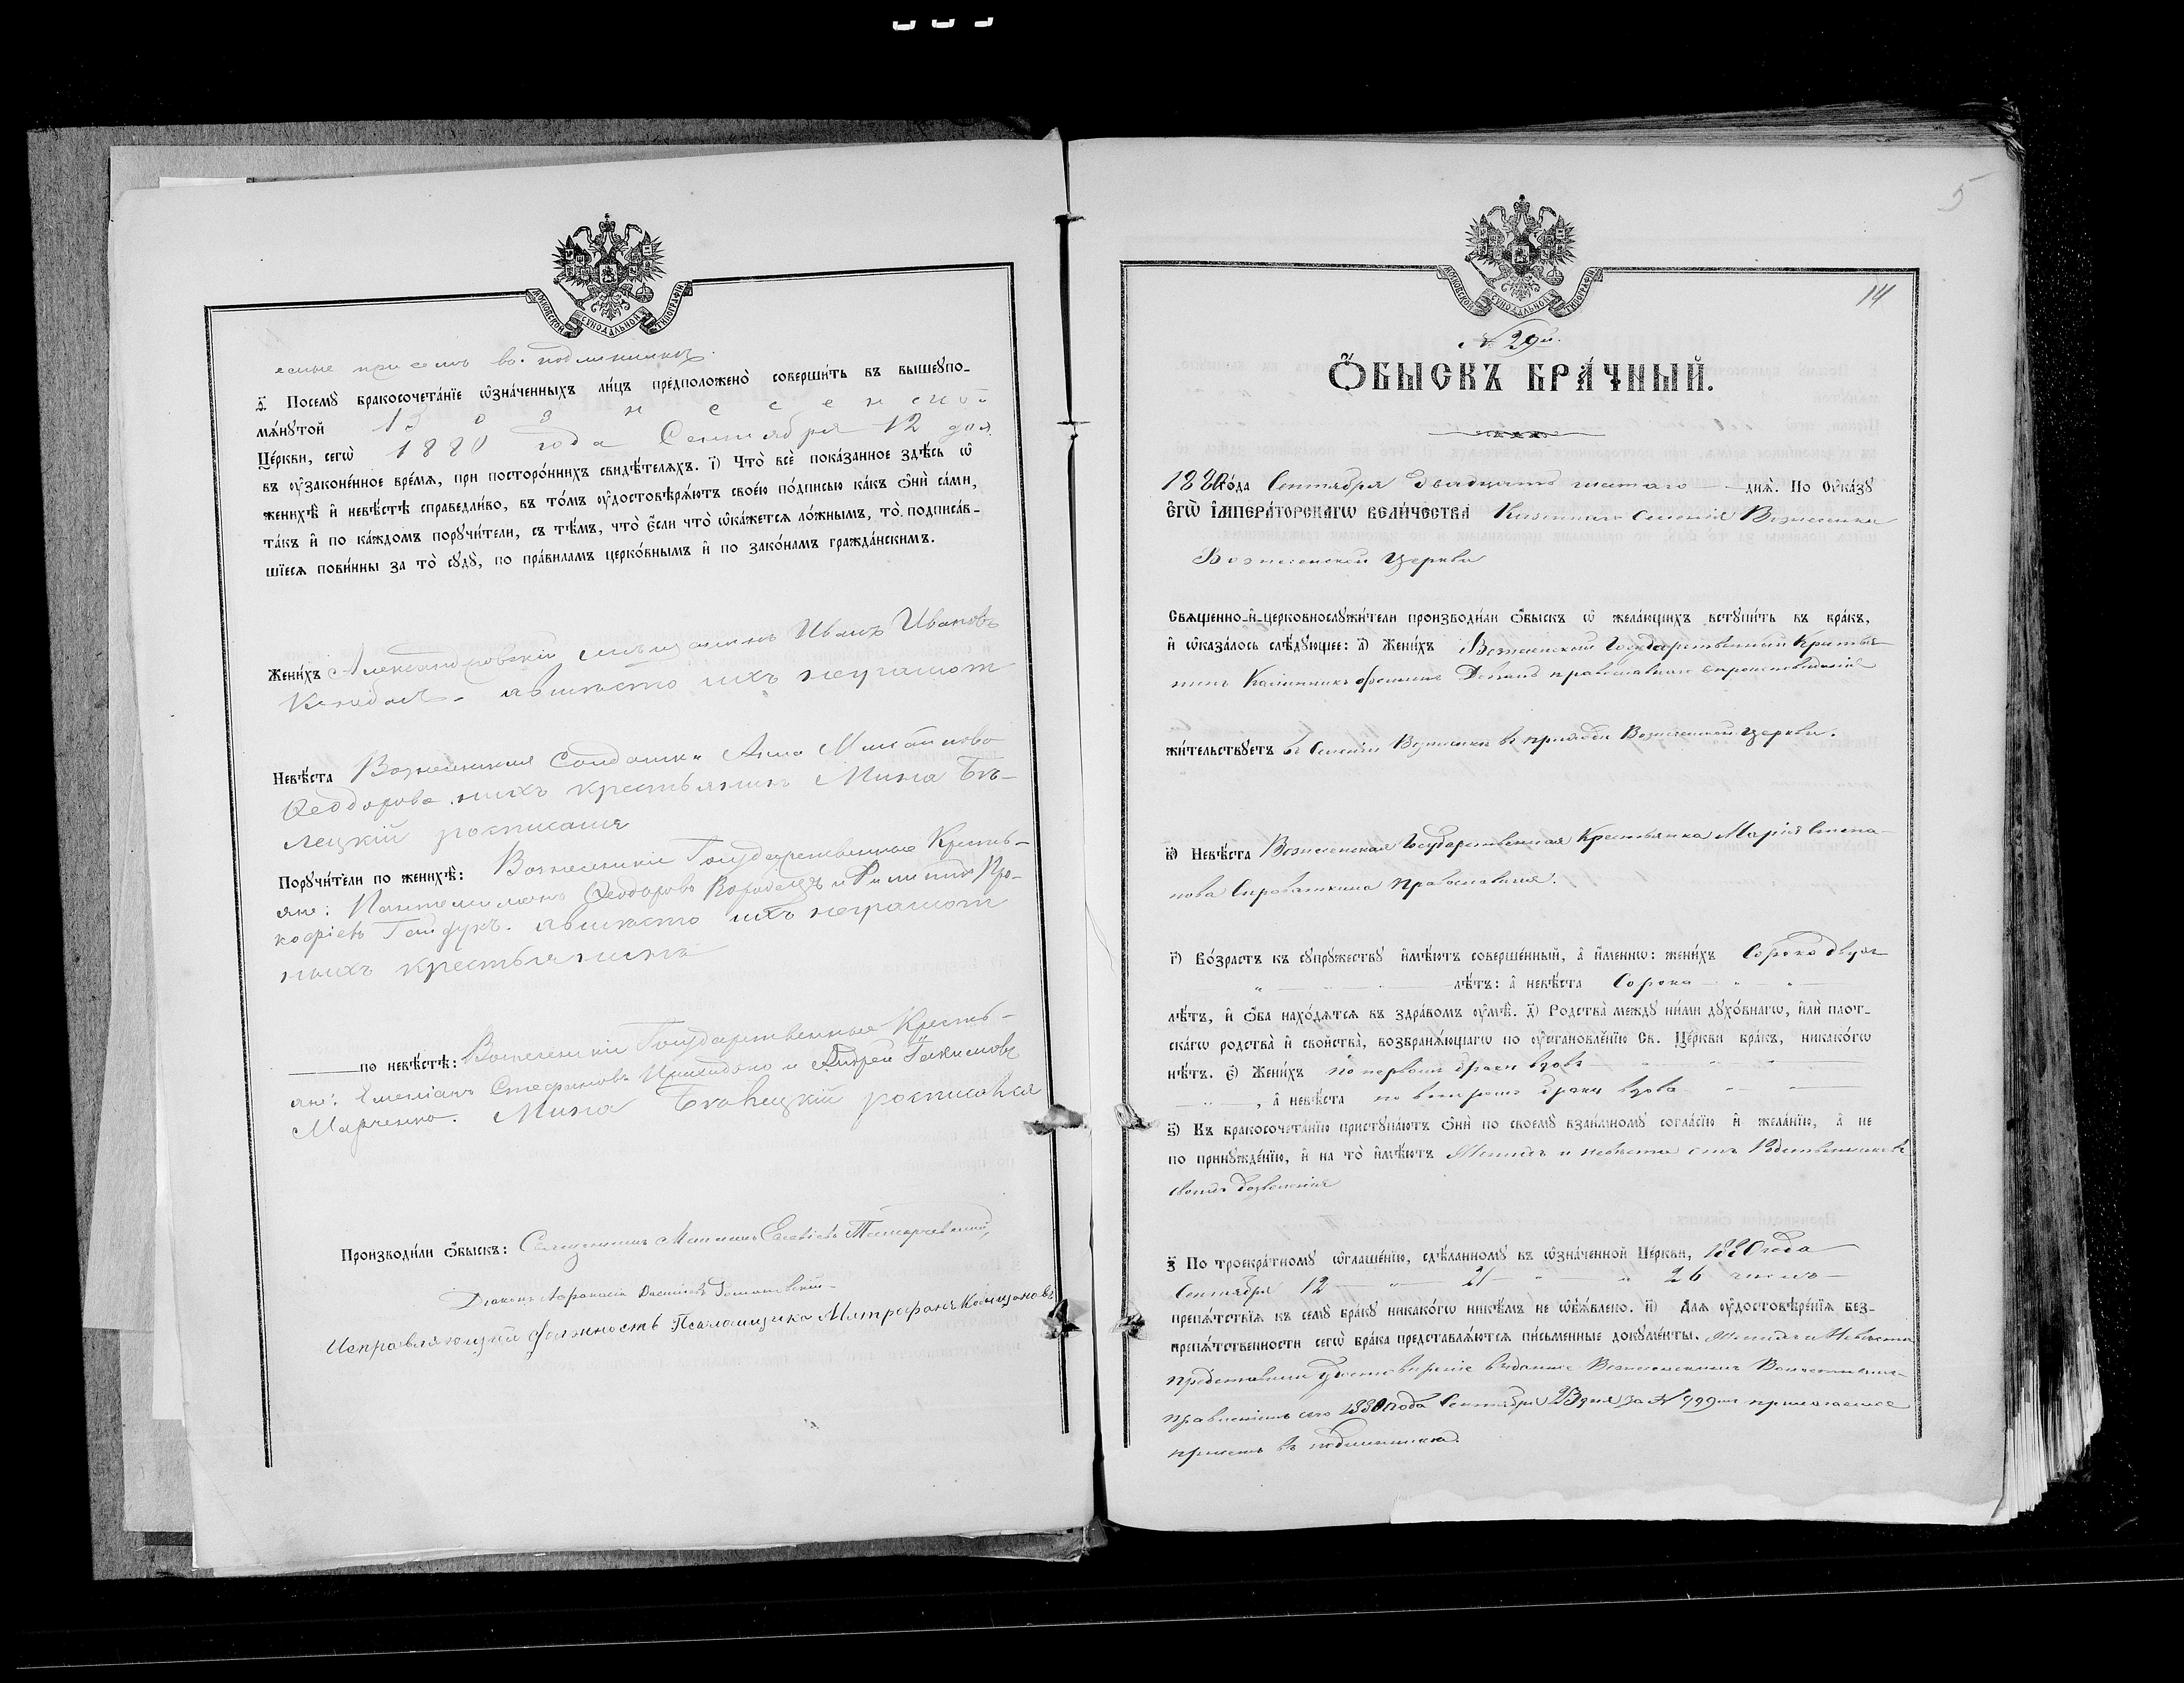 МОСКОВСКОЙ СУНОДАЛЬНОЙ ТИПОГРАФІИ
емые при семъ въ подлинникѣ.
Посемꙋ бракосочета́нїе ѡ҆зна́ченныхъ ли́цъ предположено̀ соверши́ть въ вышеꙋпо-
мѧ́нꙋтой Вознесенско-
Це́ркви, сегѡ̀ 1880 года Сентября 12 дня
въ ᲂу҆законе́нное вре́мѧ, при посторо́ннихъ свидѣ́телѧхъ. і҃) Что̀ всѐ пока́занное здѣ́сь ѡ҆
женихѣ̀ и҆ невѣ́стѣ справедли́во, въ то́мъ ᲂу҆достовѣрѧ́ютъ свое́ю по́дписью ка́къ ѻ҆нѝ са́ми,
та́къ и҆ по ка́ждомъ порꙋчи́тели, съ тѣ́мъ, что̀ є҆́сли что̀ ѡ҆ка́жетсѧ ло́жнымъ, то̀ подписа́в-
шїесѧ пови́нны за то̀ сꙋдꙋ̀, по пра́виламъ церко́внымъ и҆ по зако́намъ гражда́нскимъ.
Жени́хъ Александровскій мѣщанинъ Иванъ Ивановъ
а вмѣсто ихъ неграмот
Невѣ́ста Вознесенская Солдатка Анна Михайлова
Ѳеодорова нихъ крестьянинъ Мина Бѣ-
лецкій росписался
Порꙋчи́тели по женихѣ̀: Вознесенскіе Государственные Кресть-
яне: Пантелимонъ Ѳеодоровъ и Филиппъ Про-
кофіевъ Гайдукъ. а вмѣсто ихъ неграмот
ныхъ крестьянинъ
по невѣ́стѣ: Вознесенскіе Государственные Кресть-
яне: Емеліанъ Стефановъ и Андрей
Марченко. Мина Бѣлецкій росписался
Производи́ли ѻ҆́быскъ: Священникъ
Діаконъ Афанасій
Исправляющій должность Псаломщика Митрофанъ
5
МОСКОВСКОЙ СУНОДАЛЬНОЙ ТИПОГРАФІИ
14
№ 29й.
Ѻ҆́БЫСКЪ БРА́ЧНЫЙ.
1880 го́да Сентября Двадцать шестаго днѧ̀. По ᲂу҆ка́зꙋ
Є҆гѡ̀ І҆мпера́торскагѡ Вели́чества Селенія Вознесенки
Вознесенской Церкви
Свѧще́нно-и҆-церковнослꙋжи́тели производи́ли ѻ҆́быскъ ѡ҆ жела́ющихъ встꙋпи́ть въ бра́къ,
и҆ ѡ҆каза́лось слѣ́дꙋющее: а҃) Жени́хъ Вознесенскій Государственный Кресть-
янинъ Калинникъ православнаго вѣроисповѣданія
жи́тельствꙋетъ въ Селеніи Вознесенки въ приходѣ Вознесенской Церкви.
в҃) Невѣ́ста Вознесенская Государственная Крестьянка Марія Степа-
нова Сироваткина Православная.
г҃) Во́зрастъ къ сꙋпрꙋ́жествꙋ и҆мѣ́ютъ соверше́нный, а҆ и҆́меннѡ: жени́хъ Сорока двухъ
лѣ́тъ: а҆ невѣ́ста Сорока
лѣ́тъ, и҆ ѻ҆́ба нахо́дѧтсѧ въ здра́вомъ ᲂу҆мѣ̀. д҃) Родства̀ междꙋ̀ ни́ми дꙋхо́внагѡ, и҆лѝ плот-
ска́гѡ родства̀ и҆ сво́йства̀, возбранѧ́ющагѡ по ᲂу҆становле́нїю Св. Це́ркви бра́къ, никако́гѡ
нѣ́тъ. є҃) Жени́хъ по первомъ бракѣ вдовъ
, а҆ невѣ́ста по второмъ бракѣ вдова
ѕ҃) Къ бракосочета́нїю пристꙋпа́ютъ ѻ҆нѝ по своемꙋ̀ взаи́мномꙋ согла́сїю и҆ жела́нїю, а҆ не
по принꙋжде́нїю, и҆ на то̀ и҆мѣ́ютъ Женихъ и невѣста отъ Родственниковъ
своихъ дозволенія
з҃ По троекра́тномꙋ ѡ҆глаше́нїю, сдѣ́ланномꙋ въ ѡ҆зна́ченной Це́ркви, 1880 года
Сентября 12 — 21 — 26 чиселъ
препѧ́тствїѧ къ семꙋ̀ бра́кꙋ никако́гѡ никѣ́мъ не ѡ҆б̾ѧ́влено. и҃) Длѧ̀ ᲂу҆достовѣре́нїѧ без-
препѧ́тственности сегѡ̀ бра́ка представлѧ́ютсѧ пи́сьменные докꙋме́нты. Женихъ и Невѣста
представили удостовѣреніе выданное Вознесенскимъ Волостнымъ
правленіемъ сего 1880 года Сентября 23 дня за № 999 прилагаемое
присемъ въ подлинникѣ.